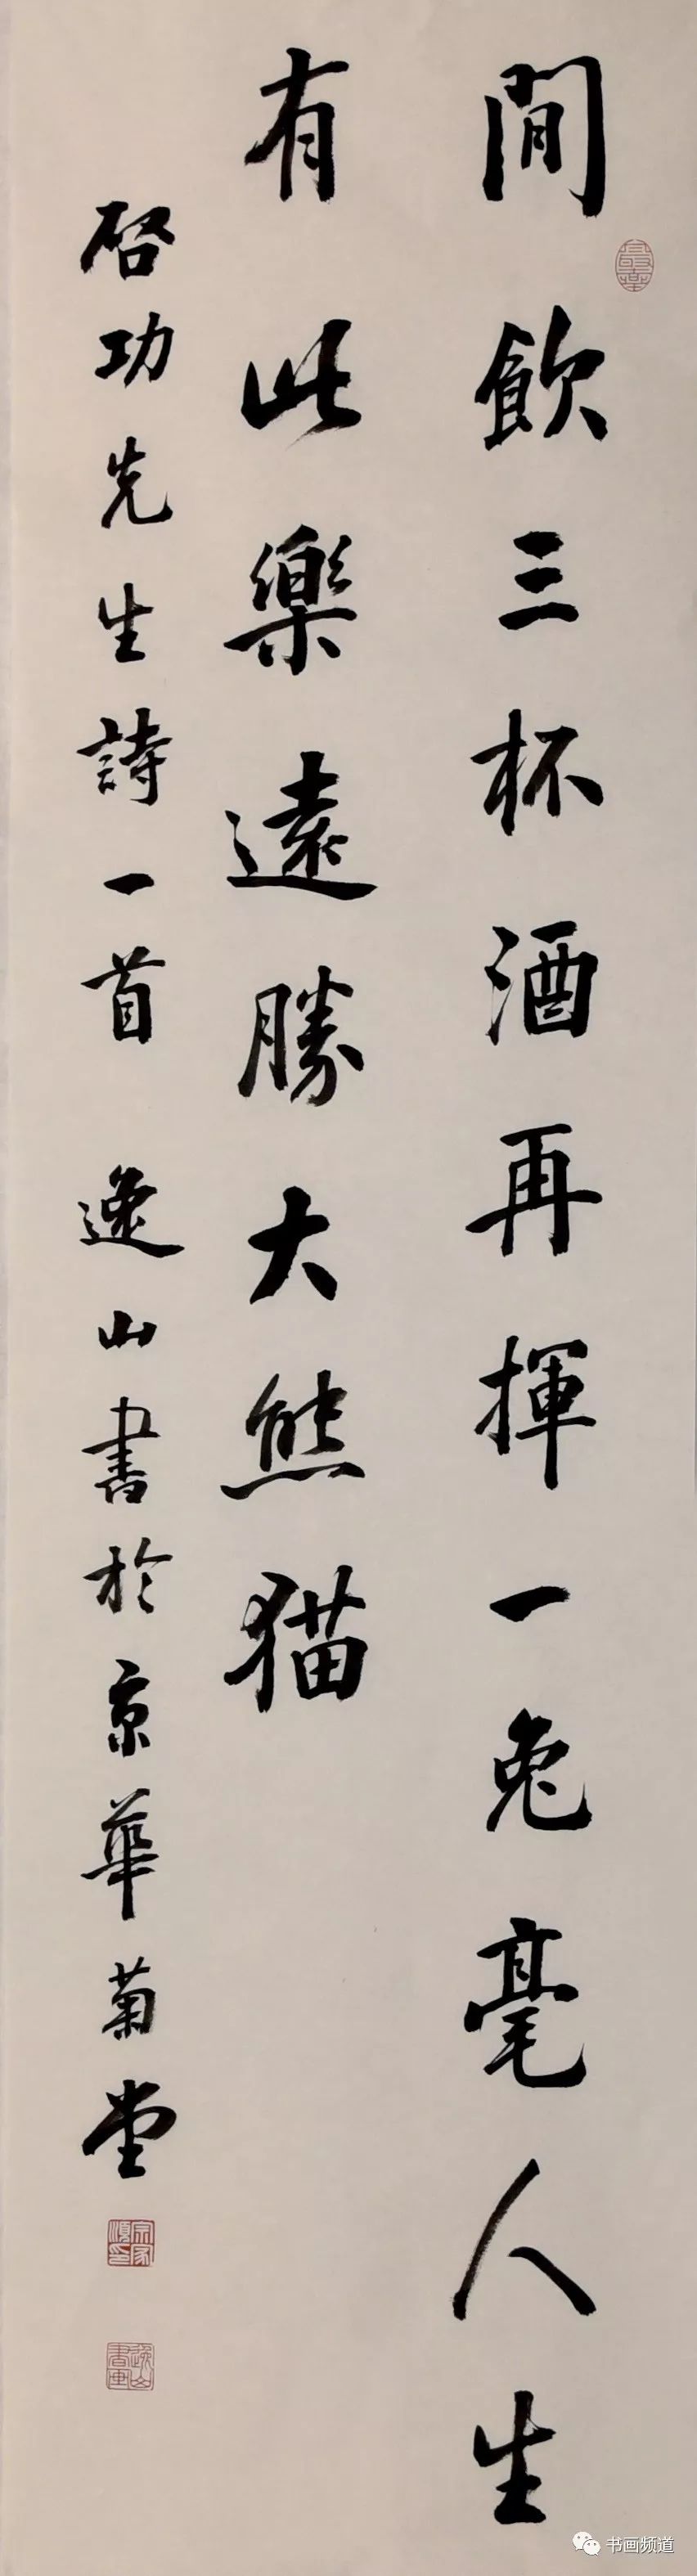 間飲三杯酒再揮一兔毫人生
有此樂遠勝大熊猫
啓功先生詩一首 逸山書於京華菊堂
逸山書画
书画频道